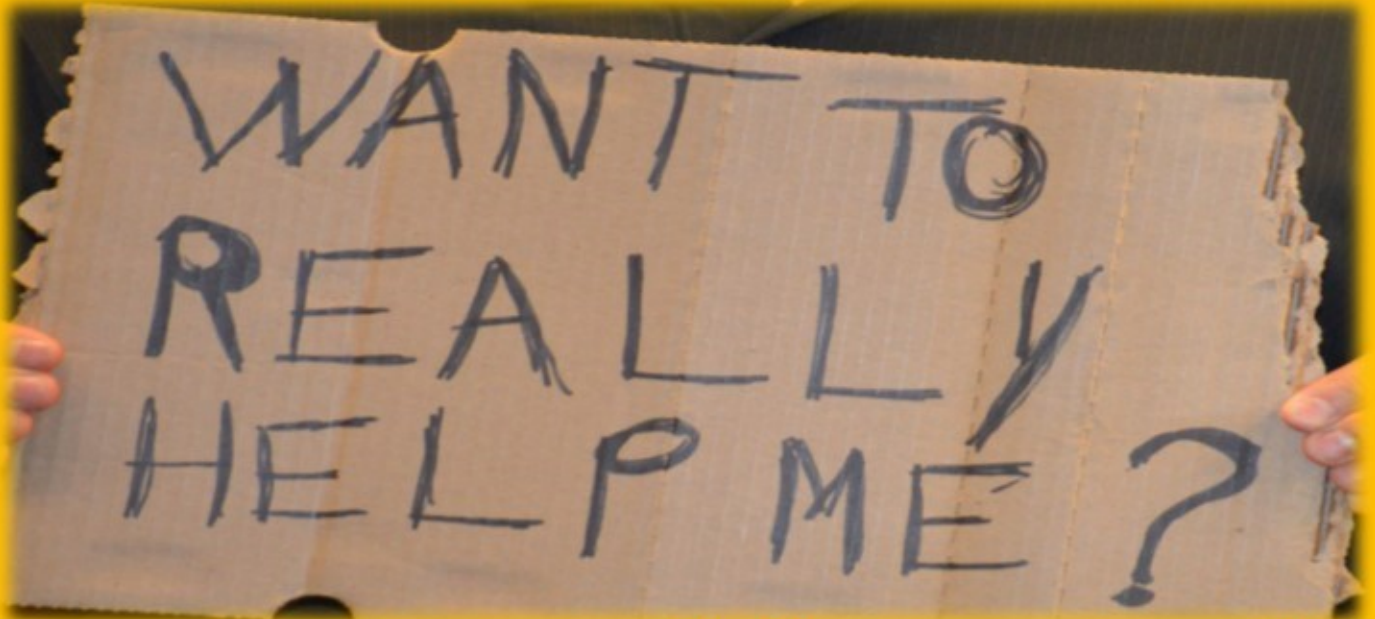 WANT TO
REALLY
HELP ME?